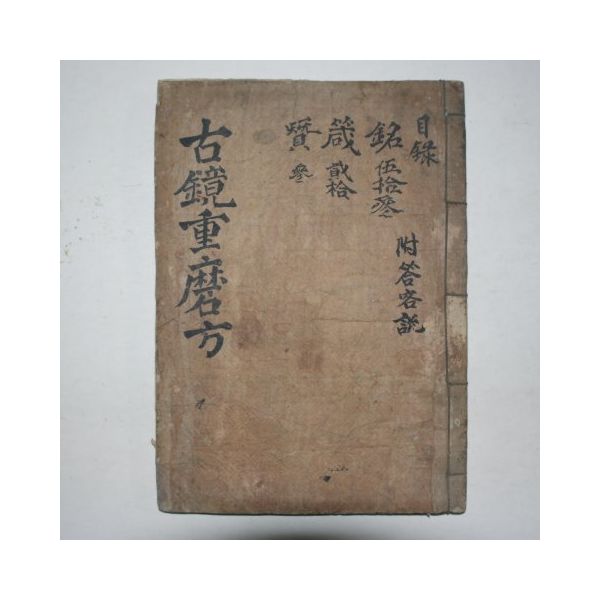 目錄
附答客說
銘 伍拾叅
箴 貳拾
贊 叅
古鏡重磨方